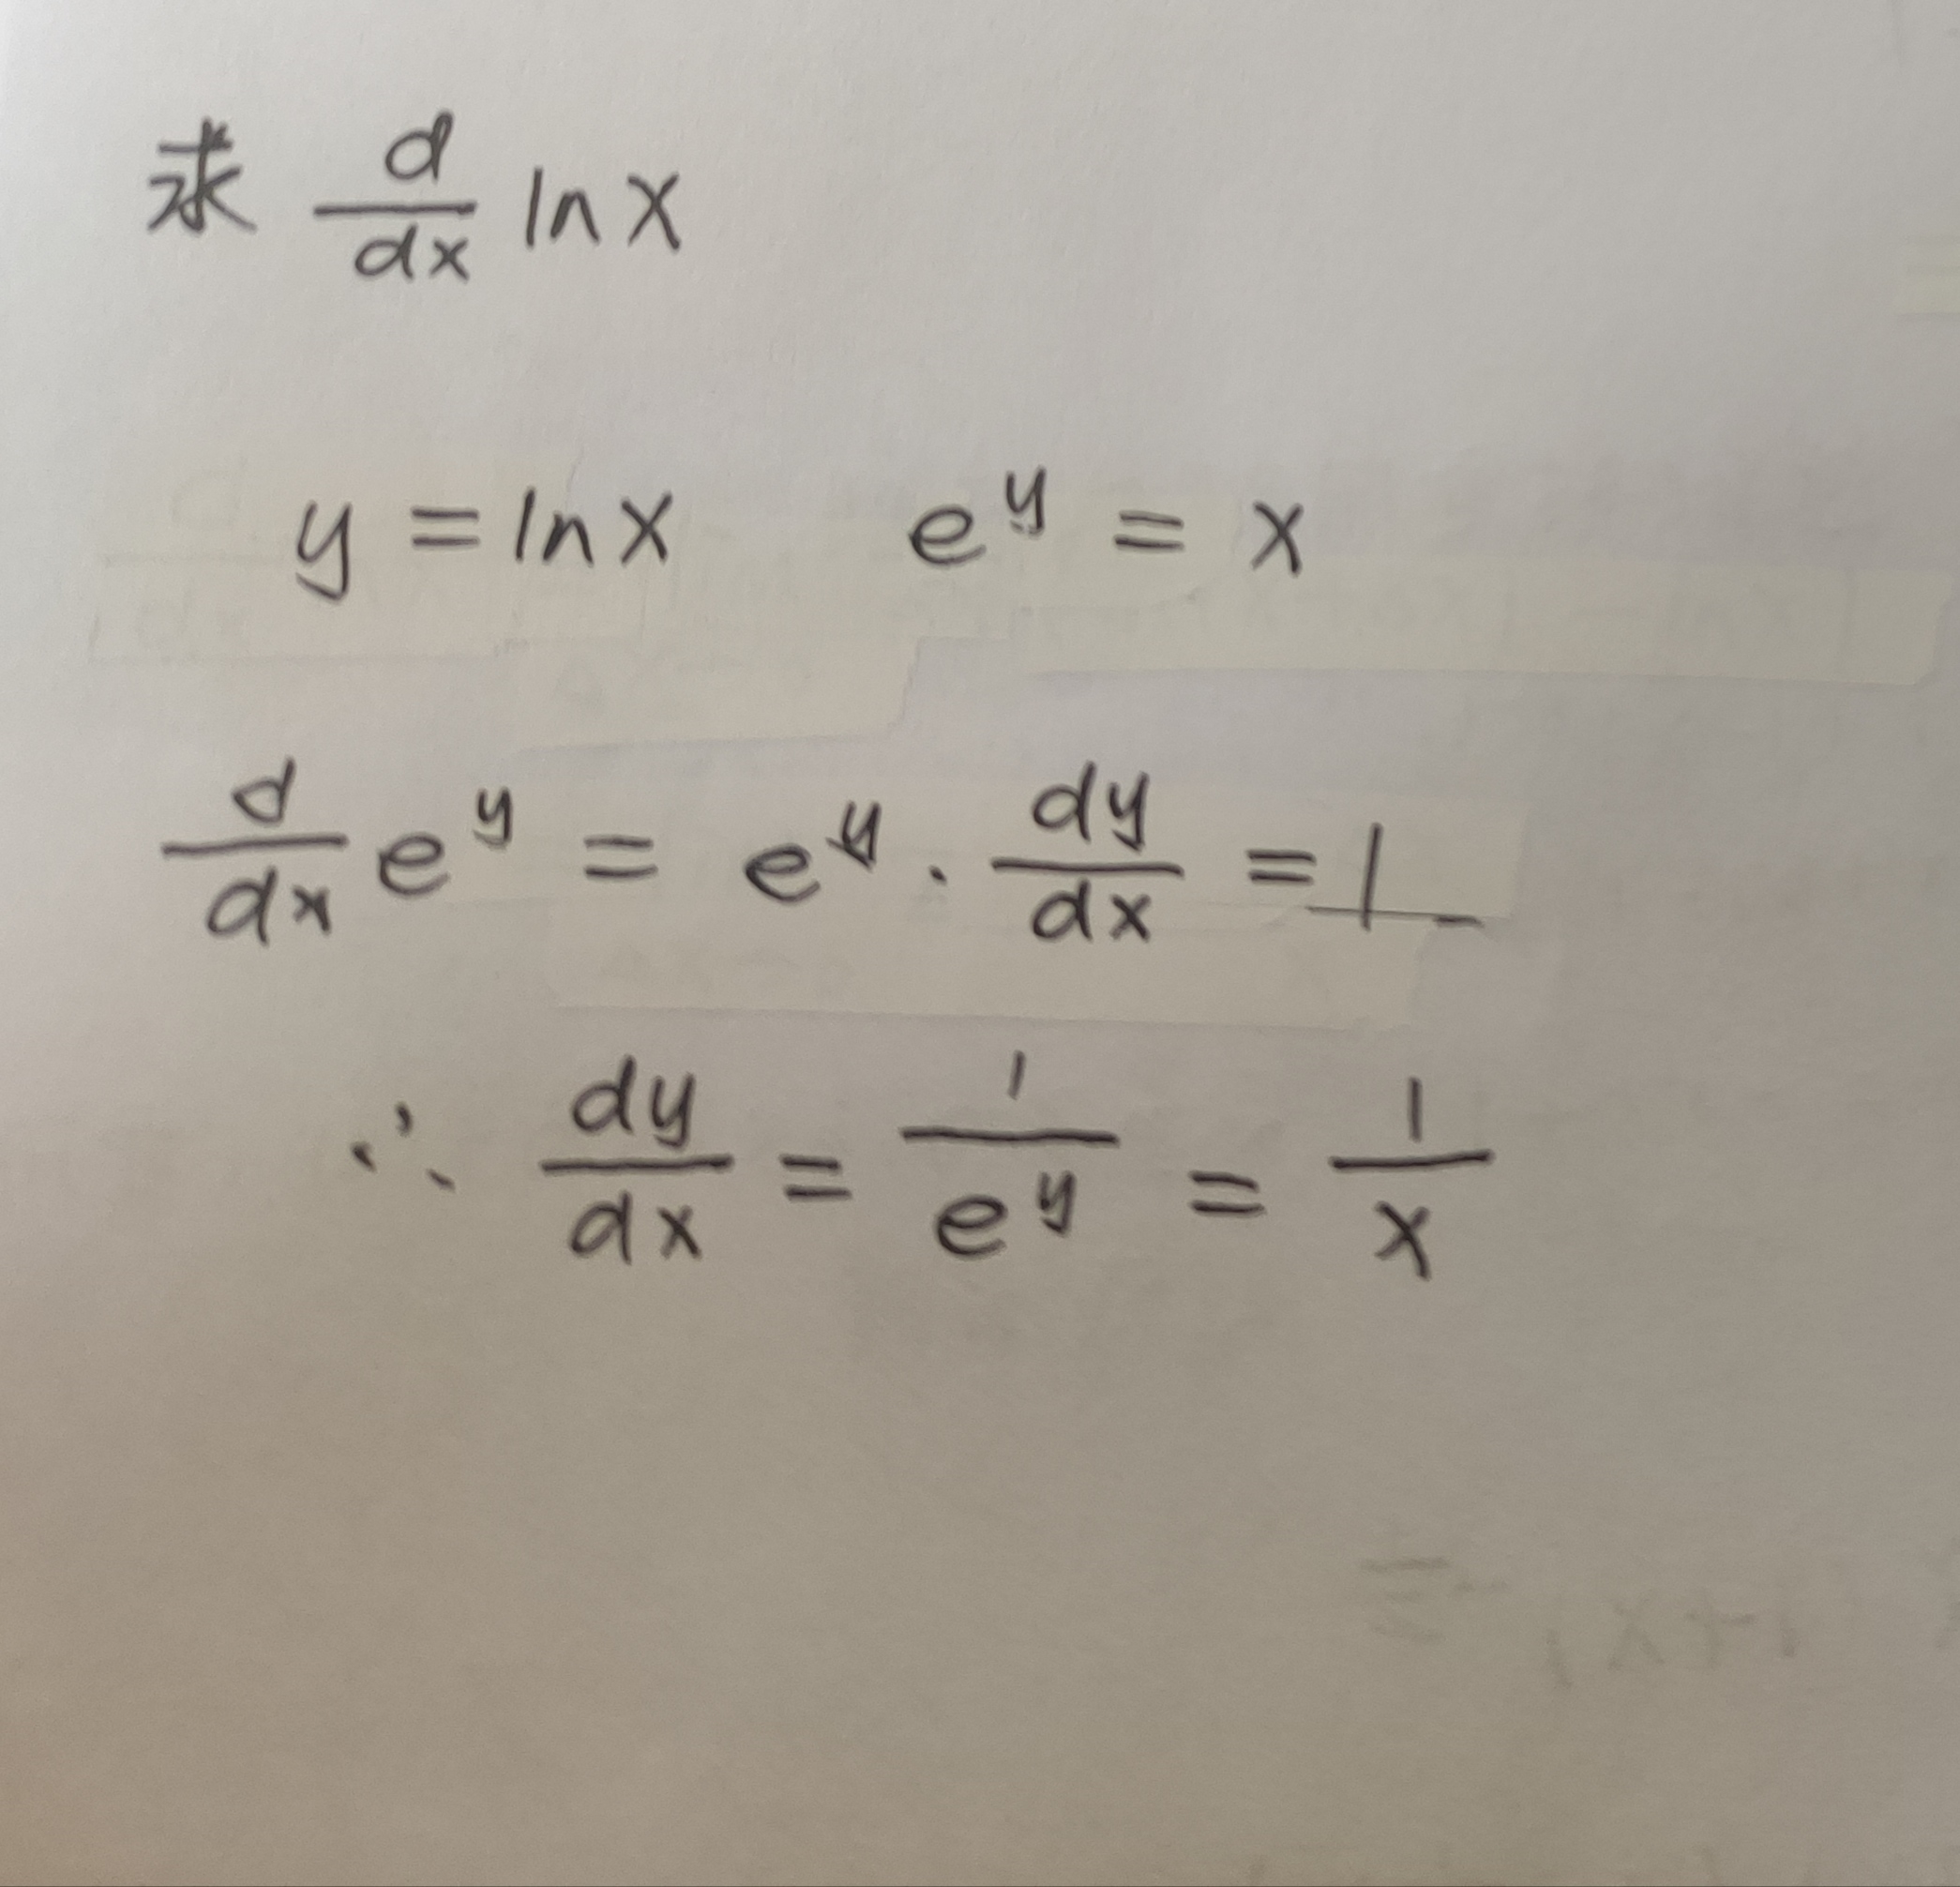 求 d/dx ln x
y = ln x    e^y = x
d/dx e^y = e^y · dy/dx = 1
∴ dy/dx = 1/e^y = 1/x